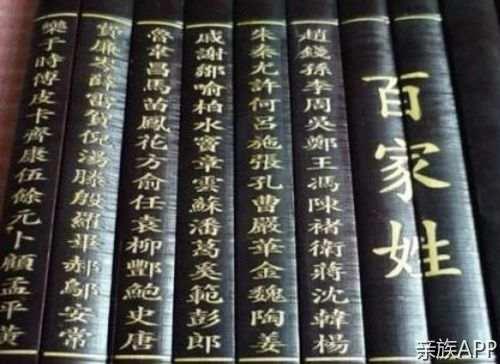 百家姓
趙錢孫李周吳鄭王馮陳褚衛蔣沈韓楊
朱秦尤許何呂施張孔曹嚴華金魏陶姜
戚謝鄒喻柏水竇章雲蘇潘葛奚範彭郎
魯韋昌馬苗鳳花方俞任袁柳酆鮑史唐
費廉岑薛雷賀倪湯滕殷羅畢郝鄔安常
樂于時傅皮卡齊康伍餘元卜顧孟平黃
亲族APP